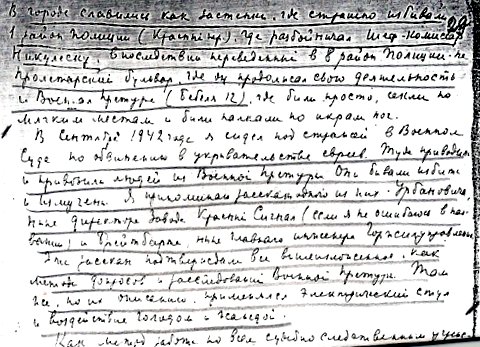 В городе славились как застенки, где страшно избивали
1 район Полиции (Красный пер), где разбойничал Шеф-Комиссар
Никулеску, впоследствии переведенный в 8 район Полиции на
Пролетарский бульвар, где он продолжал свою деятельность
и Воен-ая Претура (Бебеля 12), где били просто, секли по
мягким местам и били палками по икрам ног.
В Сентябре 1942 года я сидел под стражей в Военном
Суде по обвинению в укрывательстве евреев. Туда приводили
и привозили людей из Военной Претуры. Они бывали избиты
и измучены. Я припоминаю рассказ одного из них - Урбановича,
ныне директора завода Красный Сигнал (если я не ошибаюсь в наз-
вании) и Грейтбарта, ныне главного инженера Горжилуправления
Эти рассказы подтверждали все вышеизложенное, как
методы допросов и расследований Военной Претуры. Там
же, по их описанию, применялся электрический стул
и воздействие голодом и жаждой.
Как метод работы по всем судебно следственным